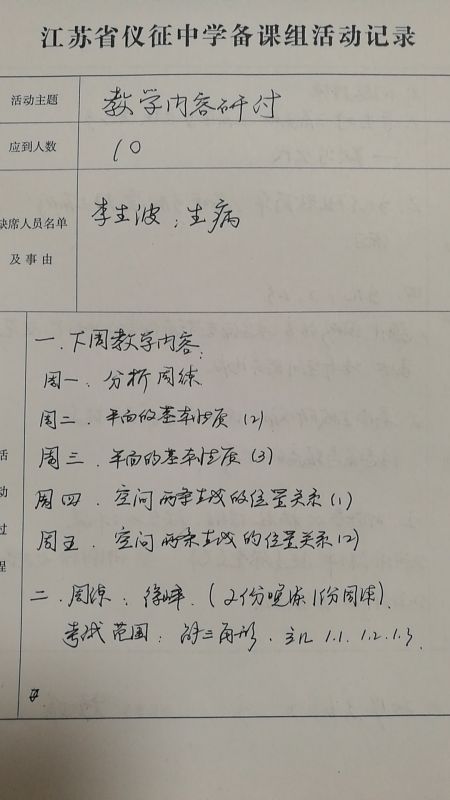 江苏省仪征中学备课组活动记录
活动主题 教学内容研讨
应到人数 10
缺席人员名单
及事由
李生波：生病
活动过程
一.下周教学内容:
周一.分析周练
周二.平面的基本性质(2)
周三.平面的基本性质(3)
周四.空间两条直线的位置关系(1)
周五.空间两条直线的位置关系(2)
二.周练:徐峰.(2份晚练1份周练).
考试范围:解三角形.立几1.1.1.2.1.3.